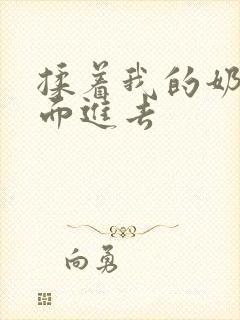 揉着我的奶
而進去
向勇